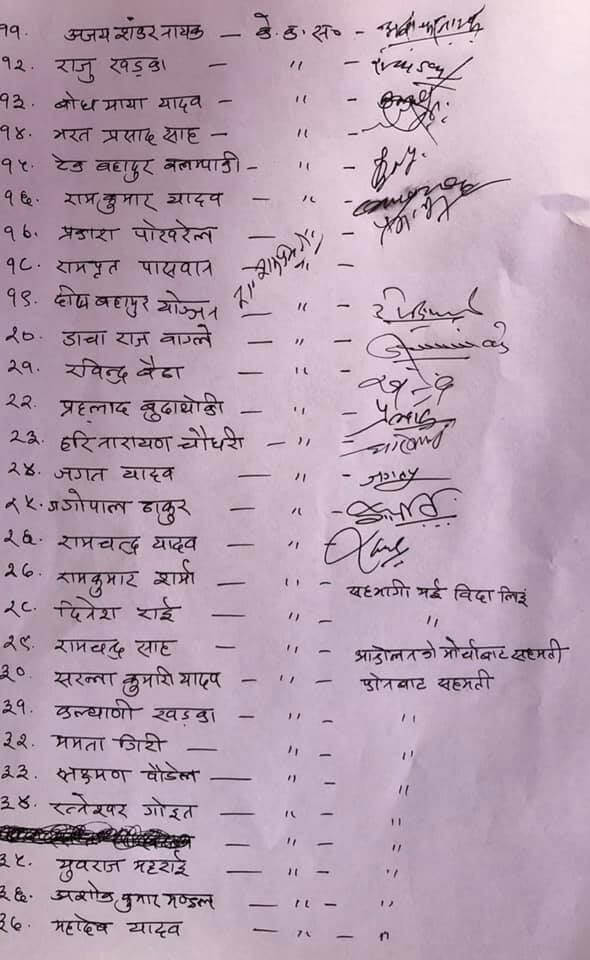 ११. अजय शंकर नायक - के. क. स० -
१२. राजु खड्का - " -
१३. बोध माया यादव - " -
१४. भरत प्रसाद साह - " -
१५. टेक बहादुर बलम्पाकी - " -
१६. रामकुमार यादव - " -
१७. प्रकाश पोखरेल - " -
१८. रामपृत पासवान " -
१९. दीप बहादुर योञ्जन - " -
२०. डाचा राज वाग्ले - " -
२१. रविन्द्र बैठा - " -
२२. प्रह्लाद बुढाथोकी - " -
२३. हरिनारायण चौधरी - " -
२४. जगत यादव - " -
२५. जगोपाल ठाकुर - " -
२६. रामचन्द्र यादव - " -
२७. रामकुमार शर्मा - " - सहभागी भई विदा लिई
२८. दिनेश राई - " - "
२९. रामचन्द्र साह - " - आन्दोलनको मोर्चाबाट सहमती
३०. सरल्ला कुमारी यादव - " - फोनबाट सहमती
३१. कल्याणी खड्का - " - "
३२. ममता गिरी - " - "
३३. लक्ष्मण पौडेल - " - "
३४. रत्नेश्वर गोइत - " - "
- " - "
३५. युवराज भट्टराई - " - "
३६. अशोक कुमार मण्डल - " - "
३७. महादेव यादव - " - "